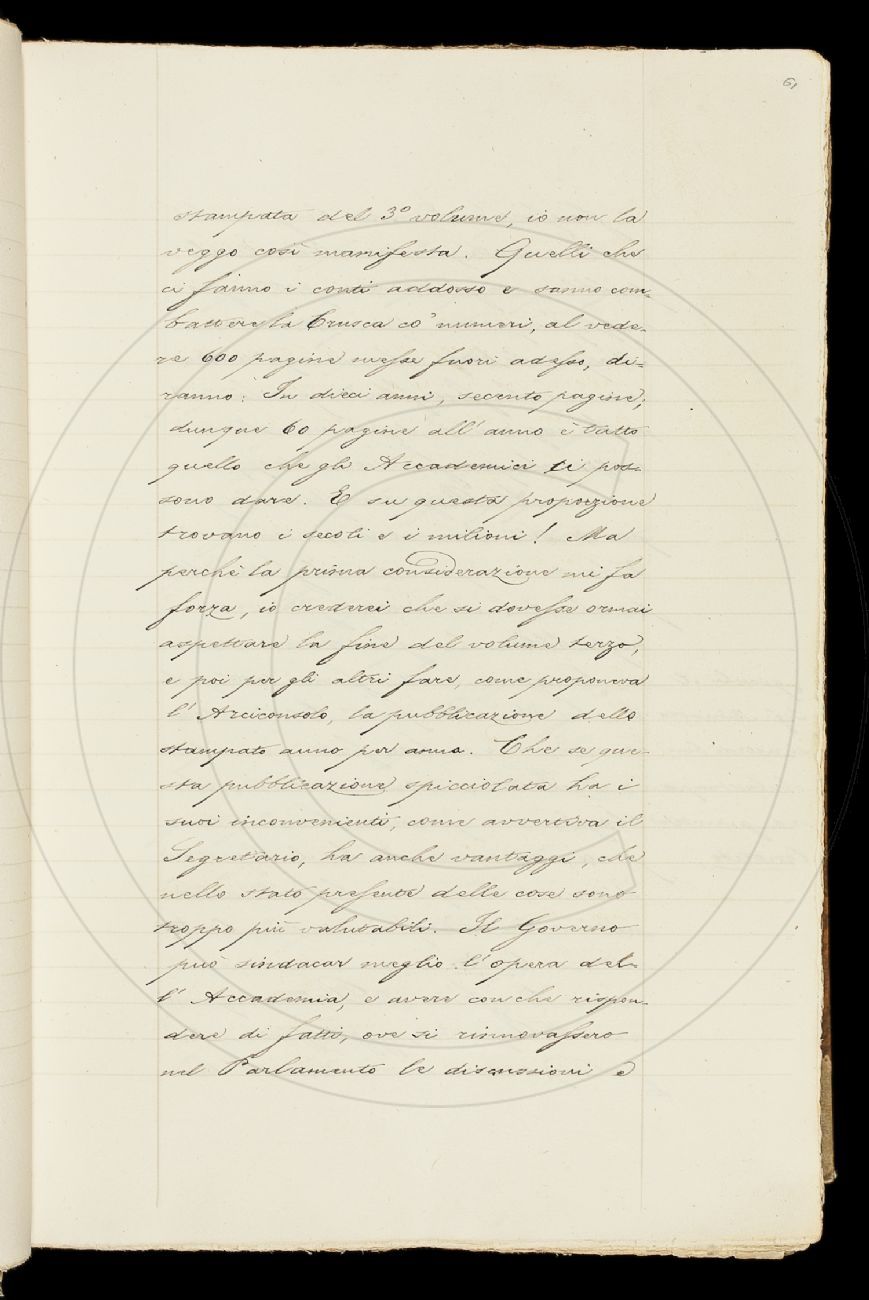 61
stampata del 3º volume, io non la
veggo così manifesta. Quelli che
ci fanno i conti addosso e sanno com-
battere la Crusca co' numeri, al vede-
re 600 pagine messe fuori adesso, di-
ranno: In dieci anni, secento pagine;
dunque 60 pagine all'anno è tutto
quello che gli Accademici ti pos-
sono dare. E su questa proporzione
trovano i secoli e i milioni! Ma
perchè la prima considerazione mi fa
forza, io crederei che si dovesse ormai
aspettare la fine del volume terzo,
e poi per gli altri fare, come proponeva
l'Arciconsolo, la pubblicazione dello
stampato anno per anno. Che se que-
sta pubblicazione spicciolata ha i
suoi inconvenienti, come avvertiva il
Segretario, ha anche vantaggi, che
nello stato presente delle cose sono
troppo più valutabili. Il Governo
può sindacar meglio l'opera del-
l'Accademia, e avere con che rispon-
dere di fatto, ove si rinnovassero
nel Parlamento le discussioni e